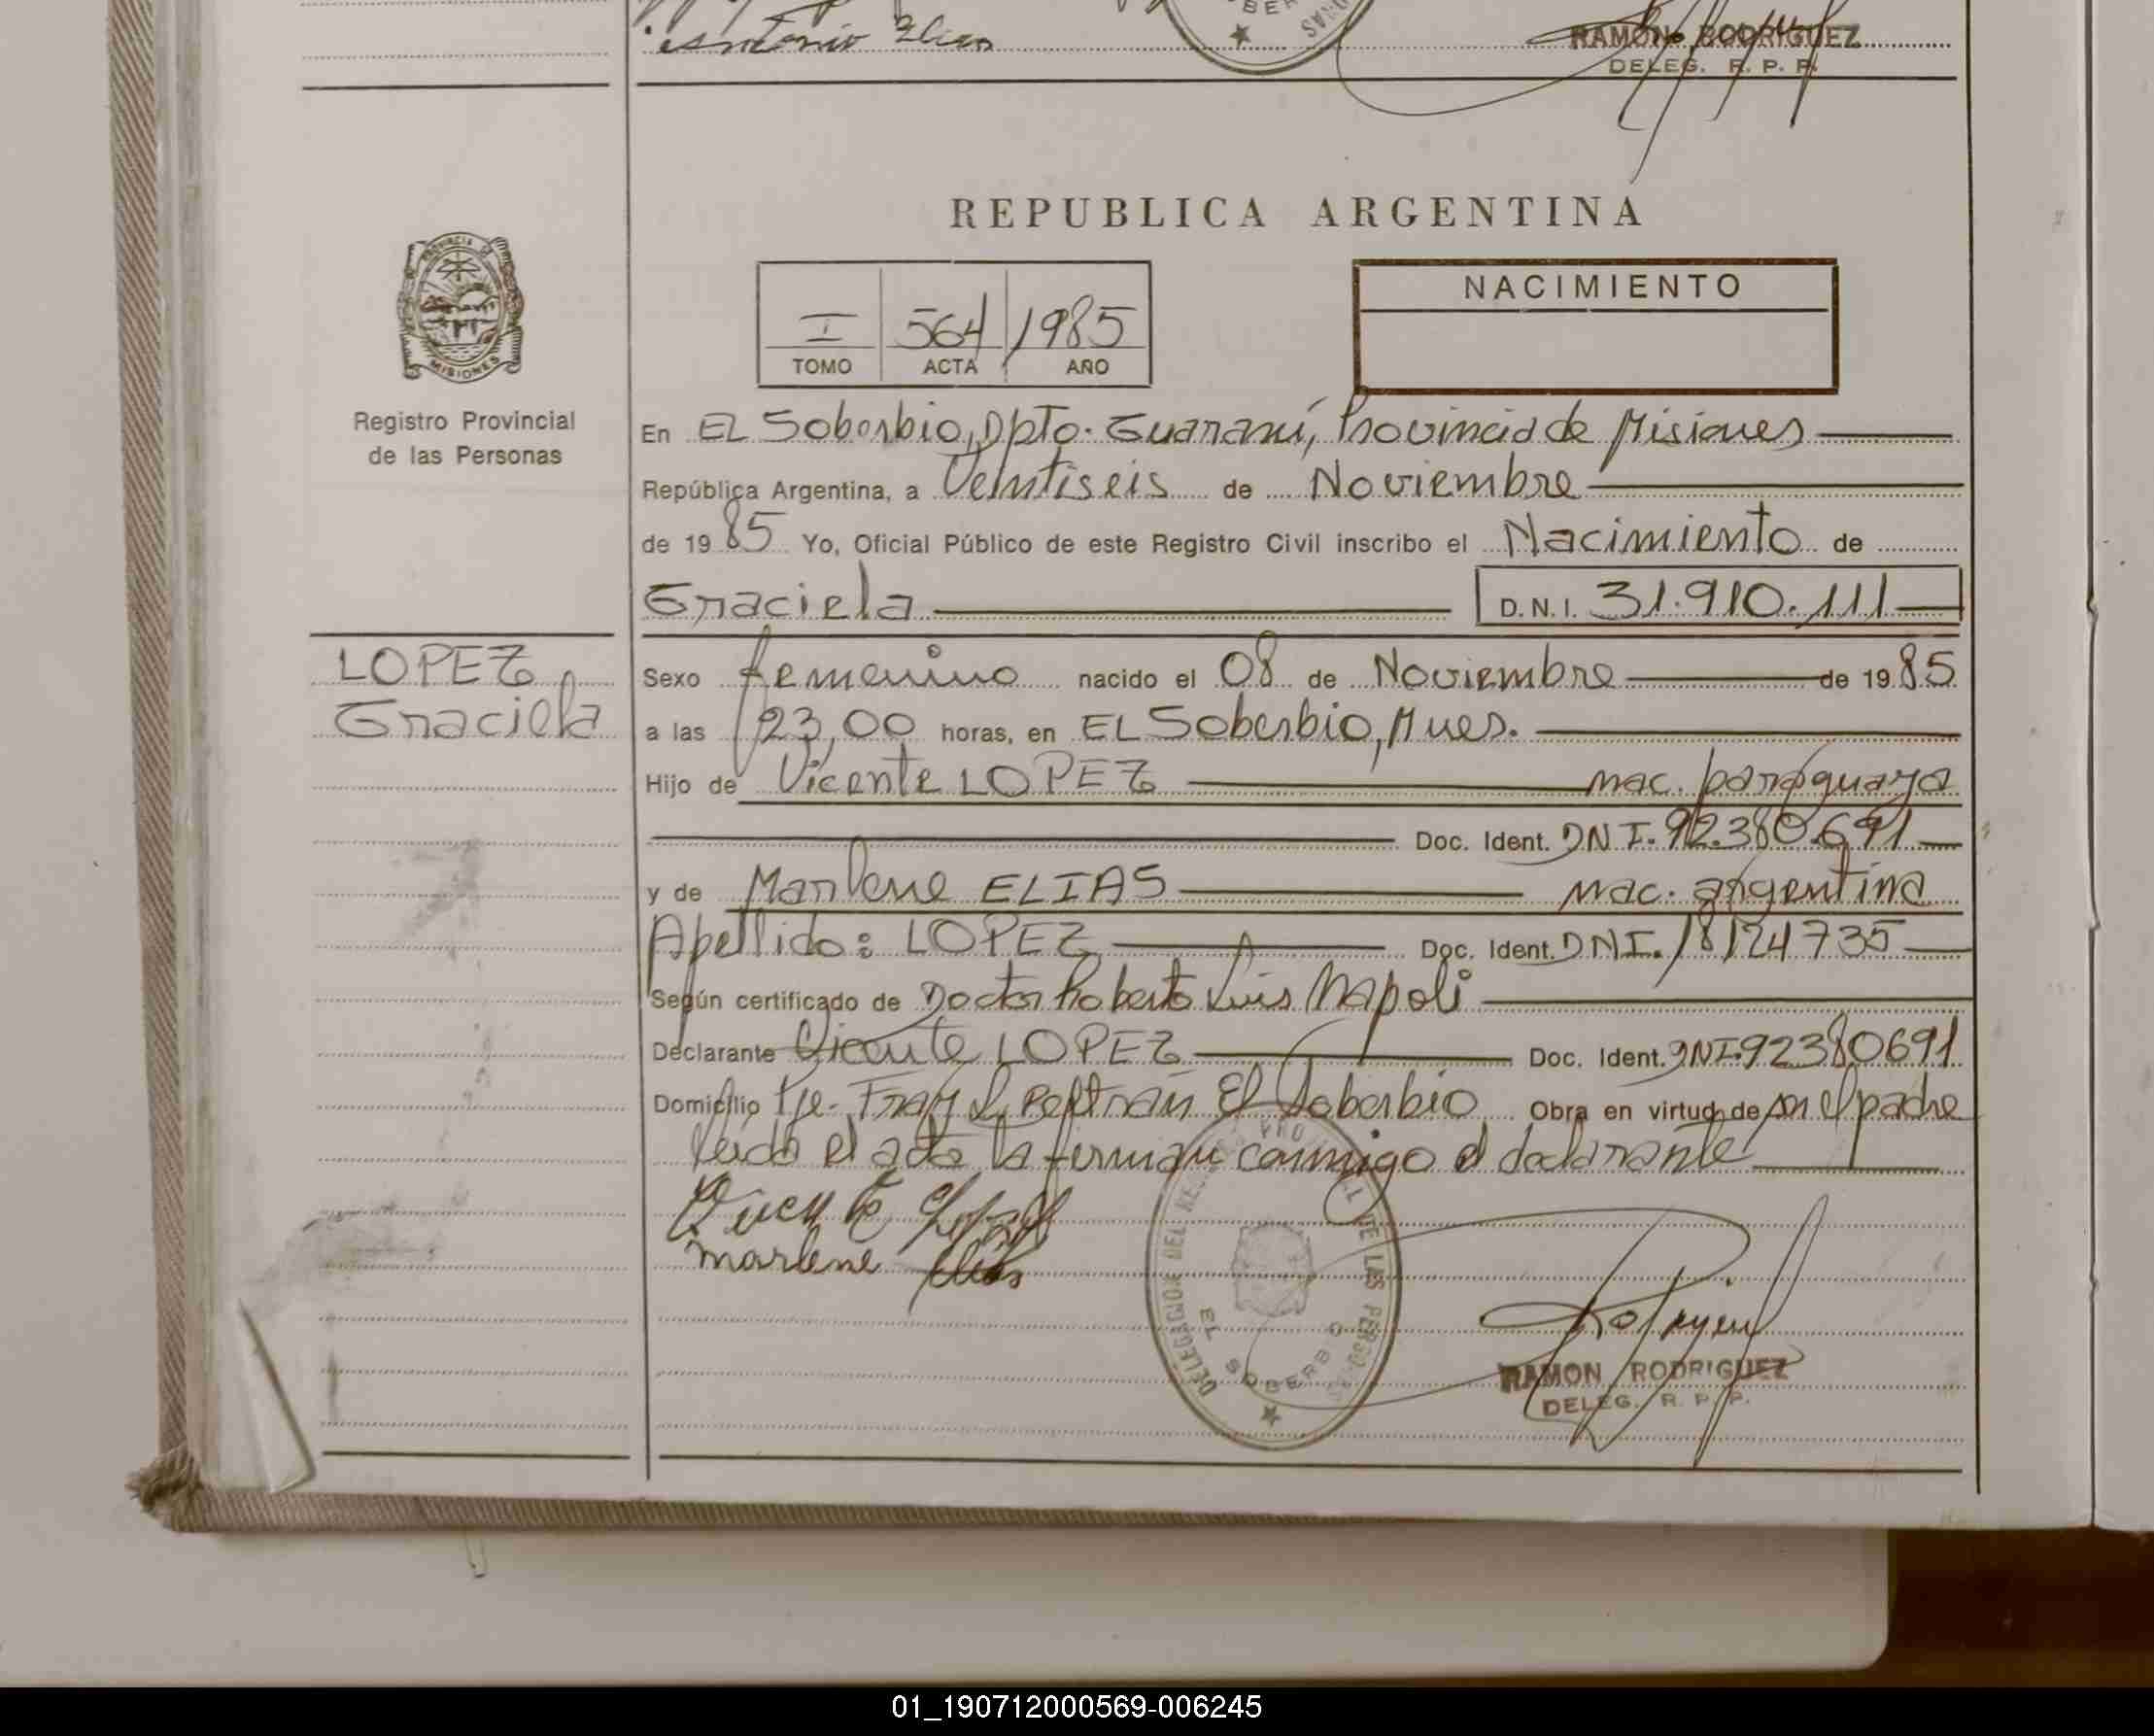 RAMON RODRIGUEZ
DELEG. R. P. P.
REPUBLICA ARGENTINA
PROVINCIA DE MISIONES
Registro Provincial
de las Personas
I 564 1985
TOMO ACTA AÑO
NACIMIENTO
En EL Soberbio, Dpto. Guaraní, Provincia de Misiones
República Argentina, a Veintiseis de Noviembre
de 1985 Yo, Oficial Público de este Registro Civil inscribo el Nacimiento de
Graciela D.N.I. 31.910.111
LOPEZ
Graciela
Sexo femenino nacido el 08 de Noviembre de 1985
a las 23,00 horas, en EL Soberbio, Mnes.
Hijo de Vicente LOPEZ nac. paraguaya
Doc. Ident. DNI. 92.380.691
y de Marlene ELIAS nac. argentina
Apellido: LOPEZ Doc. Ident. DNI. 18124735
Según certificado de Doctor Roberto Luis Napoli
Declarante Vicente LOPEZ Doc. Ident. DNI. 92380691
Domicilio Pje. Fray L. Beltran El Soberbio Obra en virtud de ser el padre
leida el acta la firman conmigo el declarante
Vicente Lopez
marlene Elias
DELEGACION DEL REGISTRO PROVINCIAL DE LAS PERSONAS
EL SOBERBIO
RAMON RODRIGUEZ
DELEG. R. P. P.
01_190712000569-006245